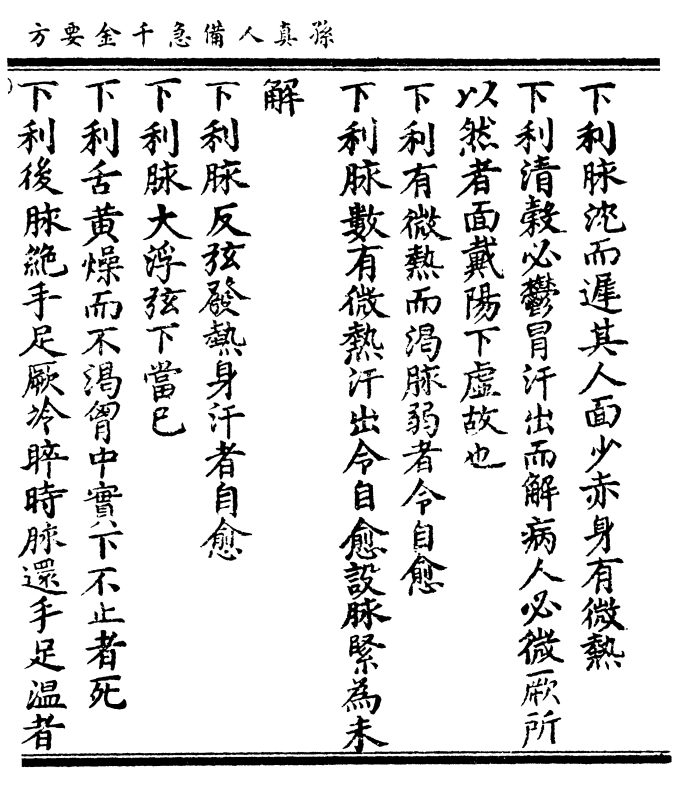 孫真人備急千金要方
下利脉沈而遲其人面少赤身有微熱
下利清穀必鬱冒汗出而解病人必微厥所
以然者面戴陽下虛故也
下利有微熱而渴脉弱者令自愈
下利脉數有微熱汗出令自愈設脉緊為未
解
下利脉反弦發熱身汗者自愈
下利脉大浮弦下當已
下利舌黃燥而不渴胷中實下不止者死
下利後脉絶手足厥冷晬時脉還手足温者